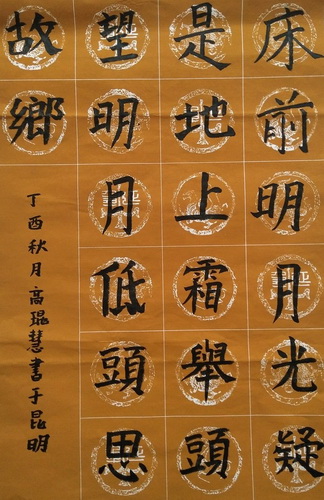 床前明月光疑
是地上霜舉頭
望明月低頭思
故鄉
丁酉秋月高琨慧書于昆明